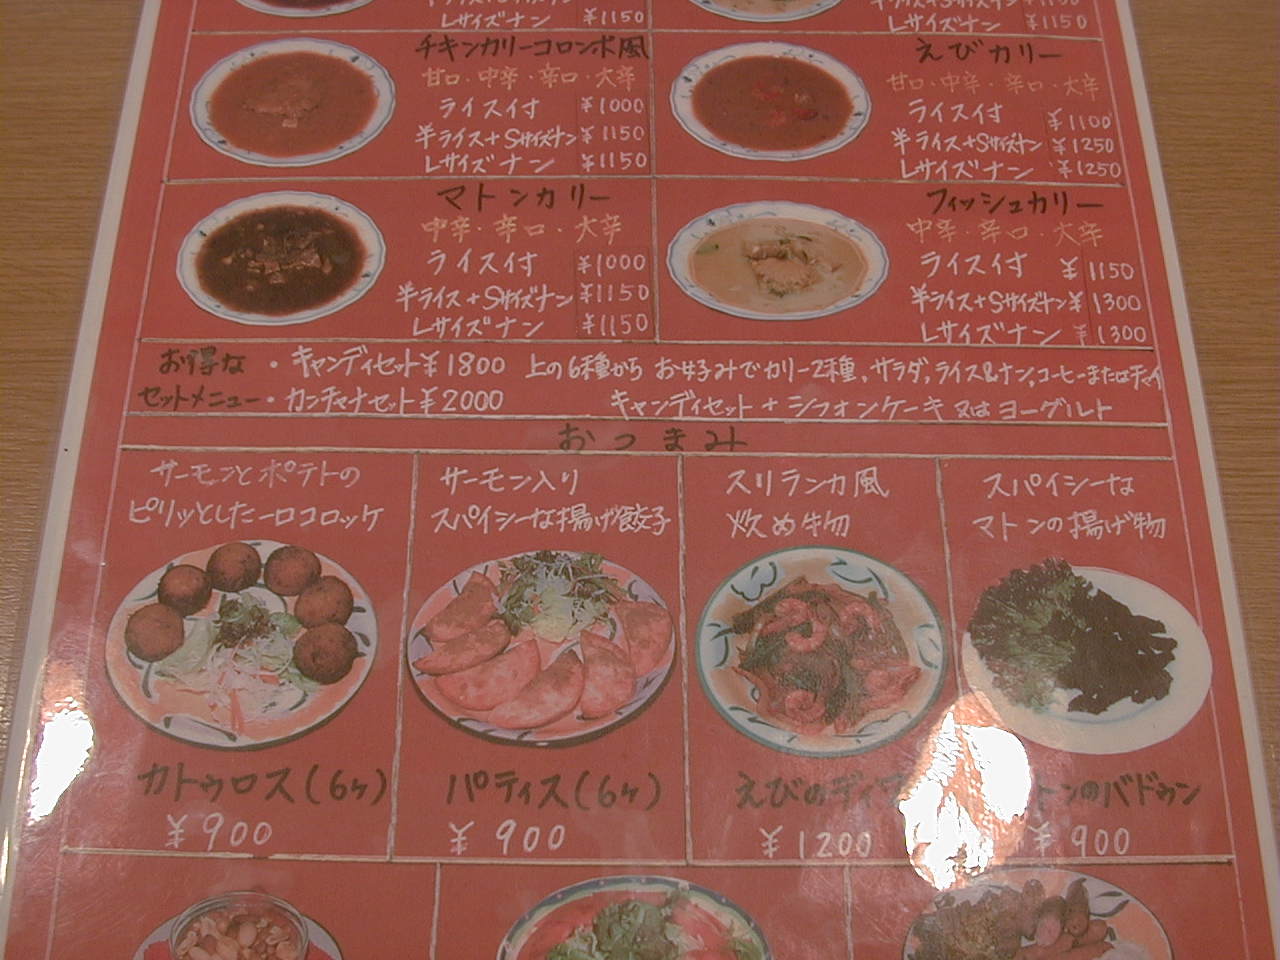 Lサイズナン ¥1150
Lサイズナン ¥1150
チキンカリーコロンボ風
甘口・中辛・辛口・大辛
ライス付 ¥1000
半ライス+Sサイズナン ¥1150
Lサイズナン ¥1150
えびカリー
甘口・中辛・辛口・大辛
ライス付 ¥1100
半ライス+Sサイズナン ¥1250
Lサイズナン ¥1250
マトンカリー
中辛・辛口・大辛
ライス付 ¥1000
半ライス+Sサイズナン ¥1150
Lサイズナン ¥1150
フィッシュカリー
中辛・辛口・大辛
ライス付 ¥1150
半ライス+Sサイズナン ¥1300
Lサイズナン ¥1300
お得な ・キャンディセット¥1800 上の6種から お好みでカリー2種,サラダ,ライス&ナン,コーヒーまたはチャイ
セットメニュー・カンチャナセット¥2000 キャンディセット+シフォンケーキ又はヨーグルト
おつまみ
サーモンとポテトの
ピリッとした一口コロッケ
カトゥロス(6ヶ)
¥900
サーモン入り
スパイシーな揚げ餃子
パティス(6ヶ)
¥900
スリランカ風
炒め物
えびのディ
¥1200
スパイシーな
マトンの揚げ物
トンのバドゥン
¥900